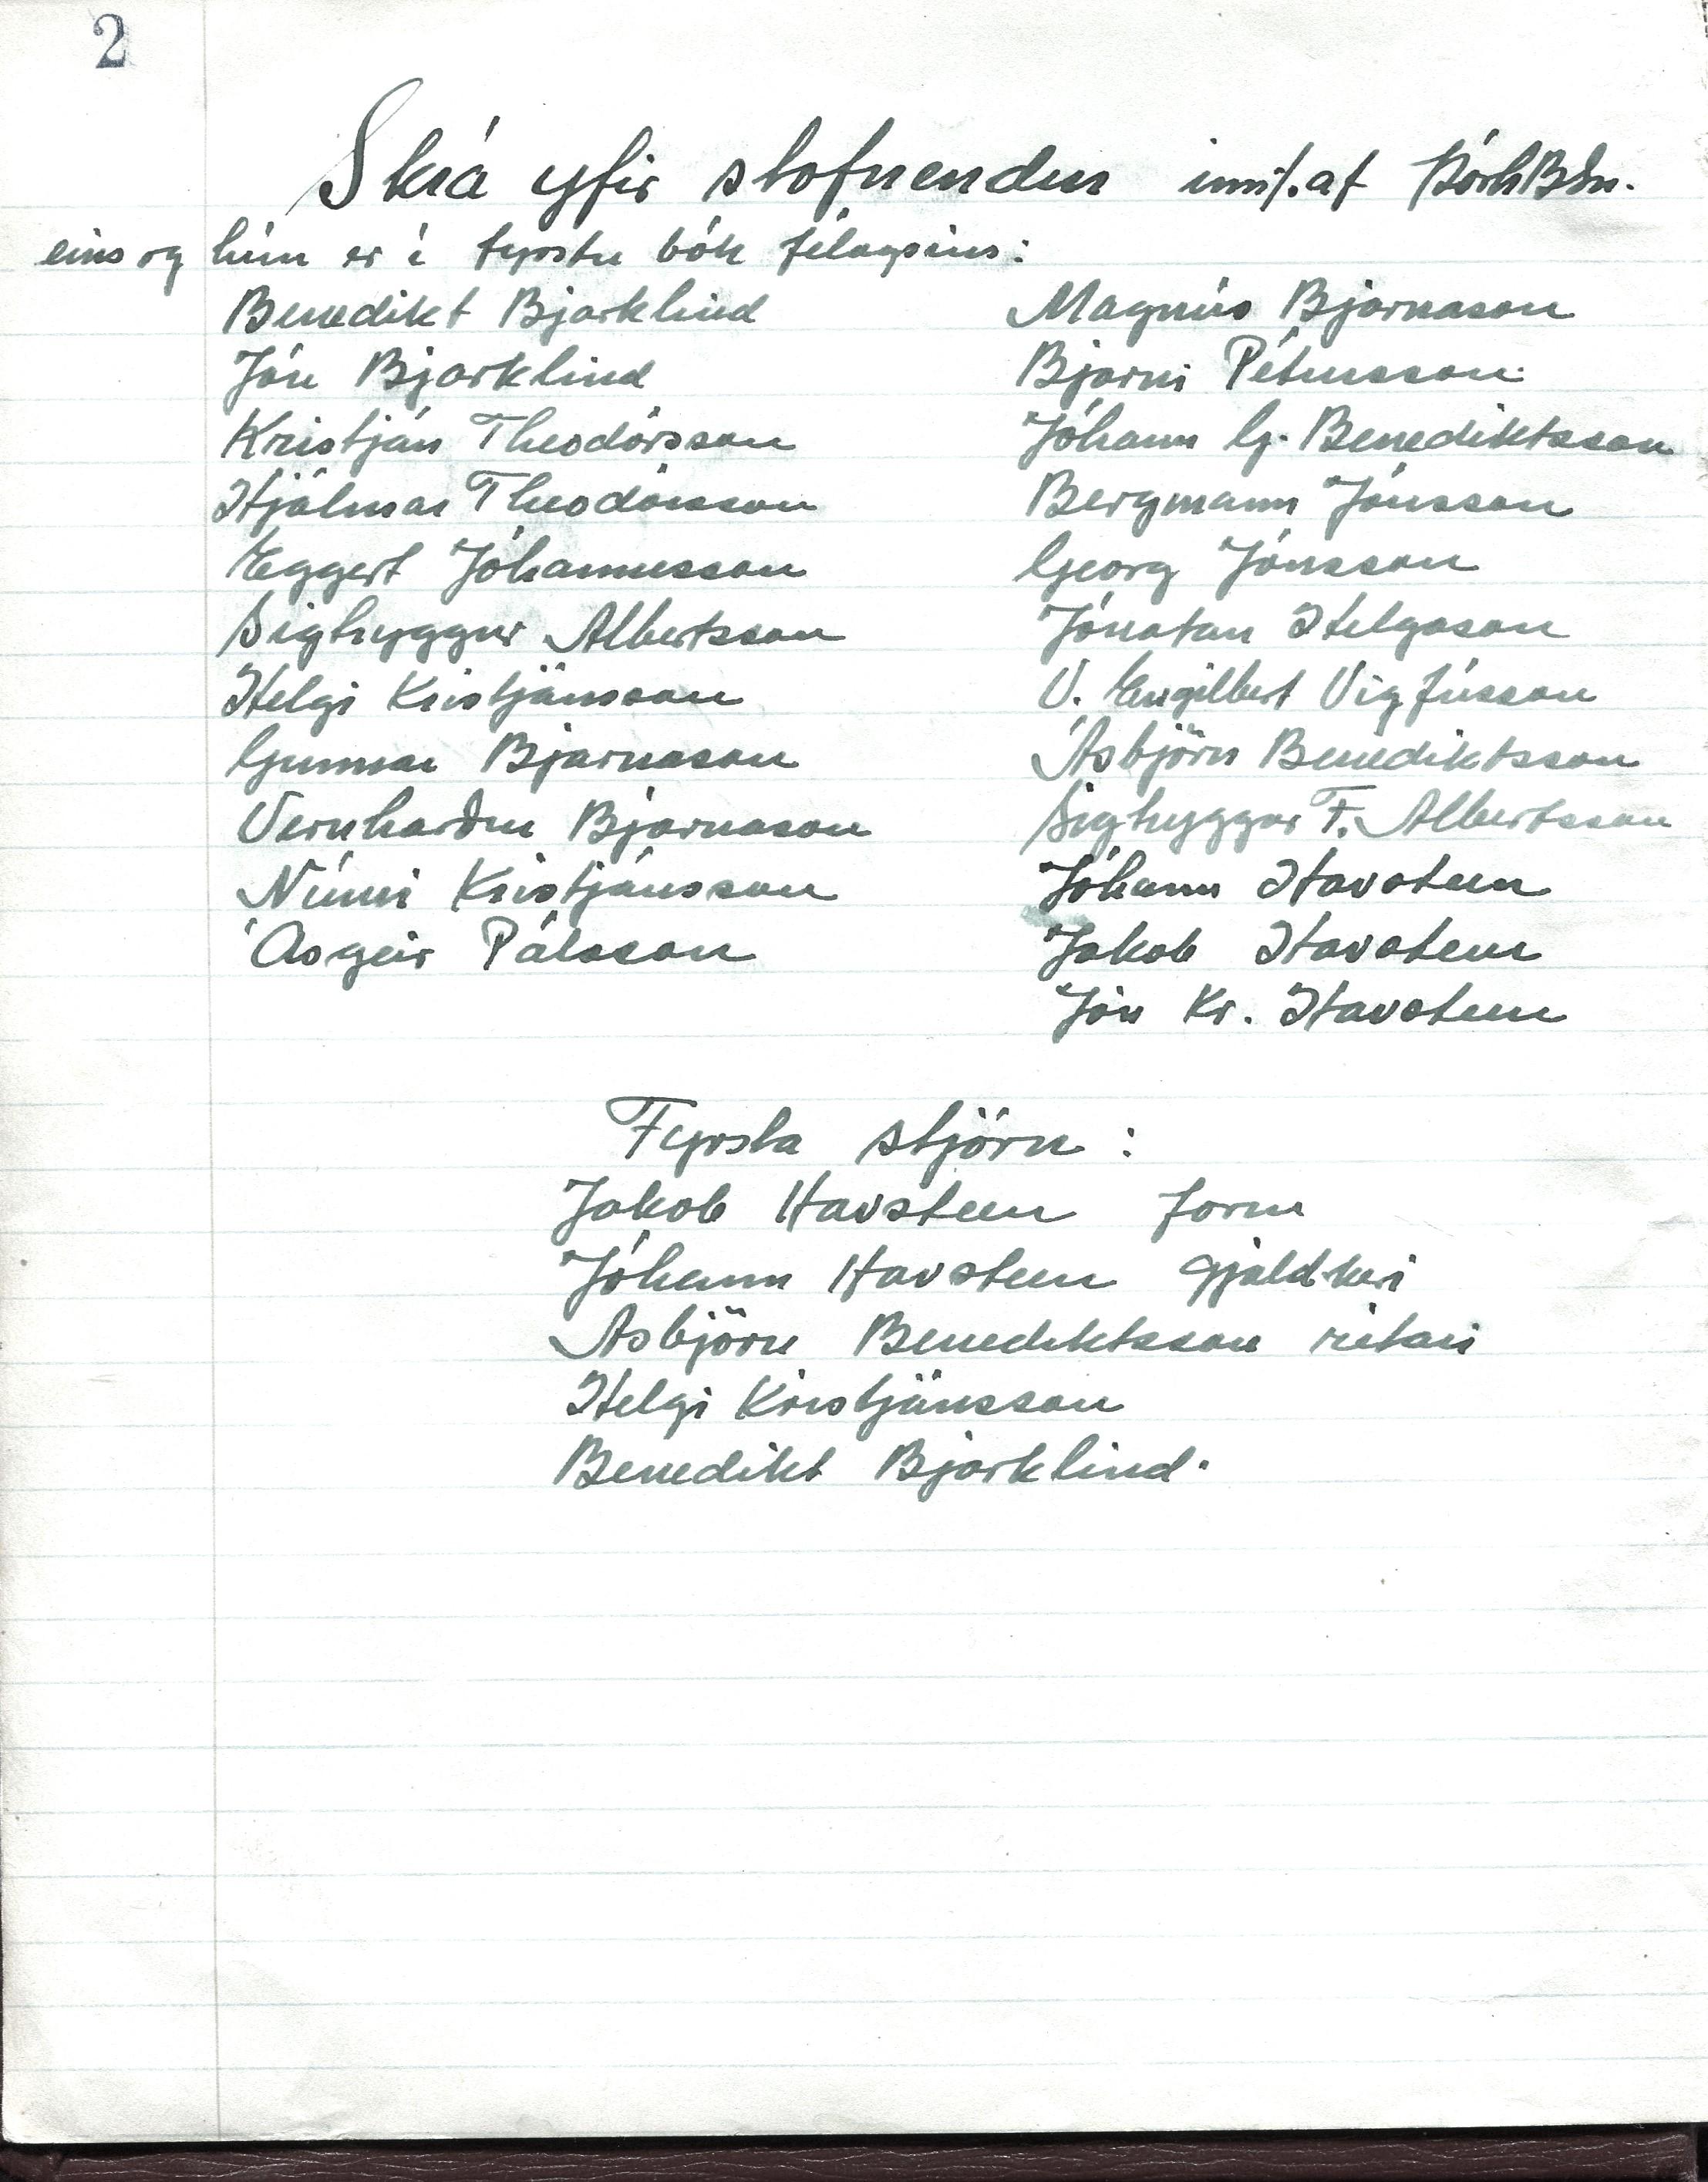 2
Skrá yfir stofnendur innf. af Þórh B Sn.
eins og hún er í fyrstu bók félagsins:
Benedikt Bjarklind
Jón Bjarklind
Kristján Theodórsson
Hjálmar Theodórsson
Eggert Jóhannesson
Sigtryggur Albertsson
Helgi Kristjánsson
Gunnar Bjarnason
Vernharður Bjarnason
Númi Kristjánsson
Ásgeir Pálsson
Magnús Bjarnason
Bjarni Pétursson
Jóhann G. Benediktsson
Bergmann Jónsson
Georg Jónsson
Jónatan Helgason
V. Engilbert Vigfússon
Ásbjörn Benediktsson
Sigtryggur F. Albertsson
Jóhann Havsteen
Jakob Havsteen
Jón Kr. Havsteen
Fyrsta stjórn:
Jakob Havsteen form
Jóhann Havsteen gjaldkeri
Asbjörn Benediktsson ritari
Helgi Kristjánsson
Benedikt Bjarklind.